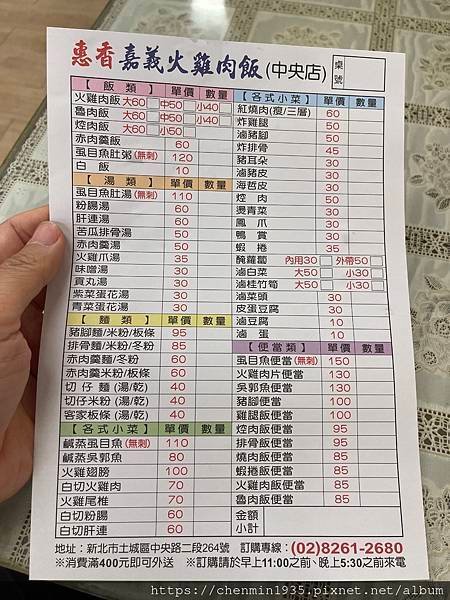 惠香 嘉義火雞肉飯(中央店)
桌號
【 飯 類 】 單價 數量
火雞肉飯 大60 中50 小40
魯肉飯 大60 中50 小40
焢肉飯 大60 小50
赤肉羹飯 60
虱目魚肚粥(無刺) 120
白 飯 10
【 湯 類 】 單價 數量
虱目魚肚湯(無刺) 110
粉腸湯 60
肝連湯 60
苦瓜排骨湯 50
赤肉羹湯 50
火雞爪湯 35
味噌湯 30
貢丸湯 30
紫菜蛋花湯 30
青菜蛋花湯 30
【 麵 類 】 單價 數量
豬腳麵/米粉/板條 95
排骨麵/米粉/冬粉 85
赤肉羹麵/冬粉 60
赤肉羹米粉/板條 60
切仔麵(湯/乾) 40
切仔米粉(湯/乾) 40
客家板條(湯/乾) 40
【各式小菜】 單價 數量
鹹蒸虱目魚(無刺) 110
鹹蒸吳郭魚 80
火雞翅膀 100
白切火雞肉 70
火雞尾椎 70
白切粉腸 60
白切肝連 60
【各式小菜】 單價 數量
紅燒肉(瘦/三層) 60
炸雞腿 50
滷豬腳 50
炸排骨 45
豬耳朵 30
滷豬皮 30
海哲皮 30
焢 肉 50
燙青菜 30
鳳 爪 30
鴨 賞 30
蝦 捲 35
醃蘿蔔 內用30 外帶50
滷白菜 大50 小30
滷桂竹筍 大50 小30
滷菜頭 30
皮蛋豆腐 30
滷豆腐 10
滷 蛋 10
【便當類】 單價 數量
虱目魚便當(無刺) 150
火雞肉片便當 130
吳郭魚便當 130
豬腳便當 100
雞腿飯便當 100
焢肉飯便當 95
排骨飯便當 95
燒肉飯便當 85
蝦捲飯便當 85
火雞肉飯便當 85
魯肉飯便當 85
金額
小計
地址：新北市土城區中央路二段264號 訂購專線：(02)8261-2680
※消費滿400元即可外送 ※訂購請於早上11:00之前、晚上5:30之前來電
https://chenmin1935.pixnet.net/album